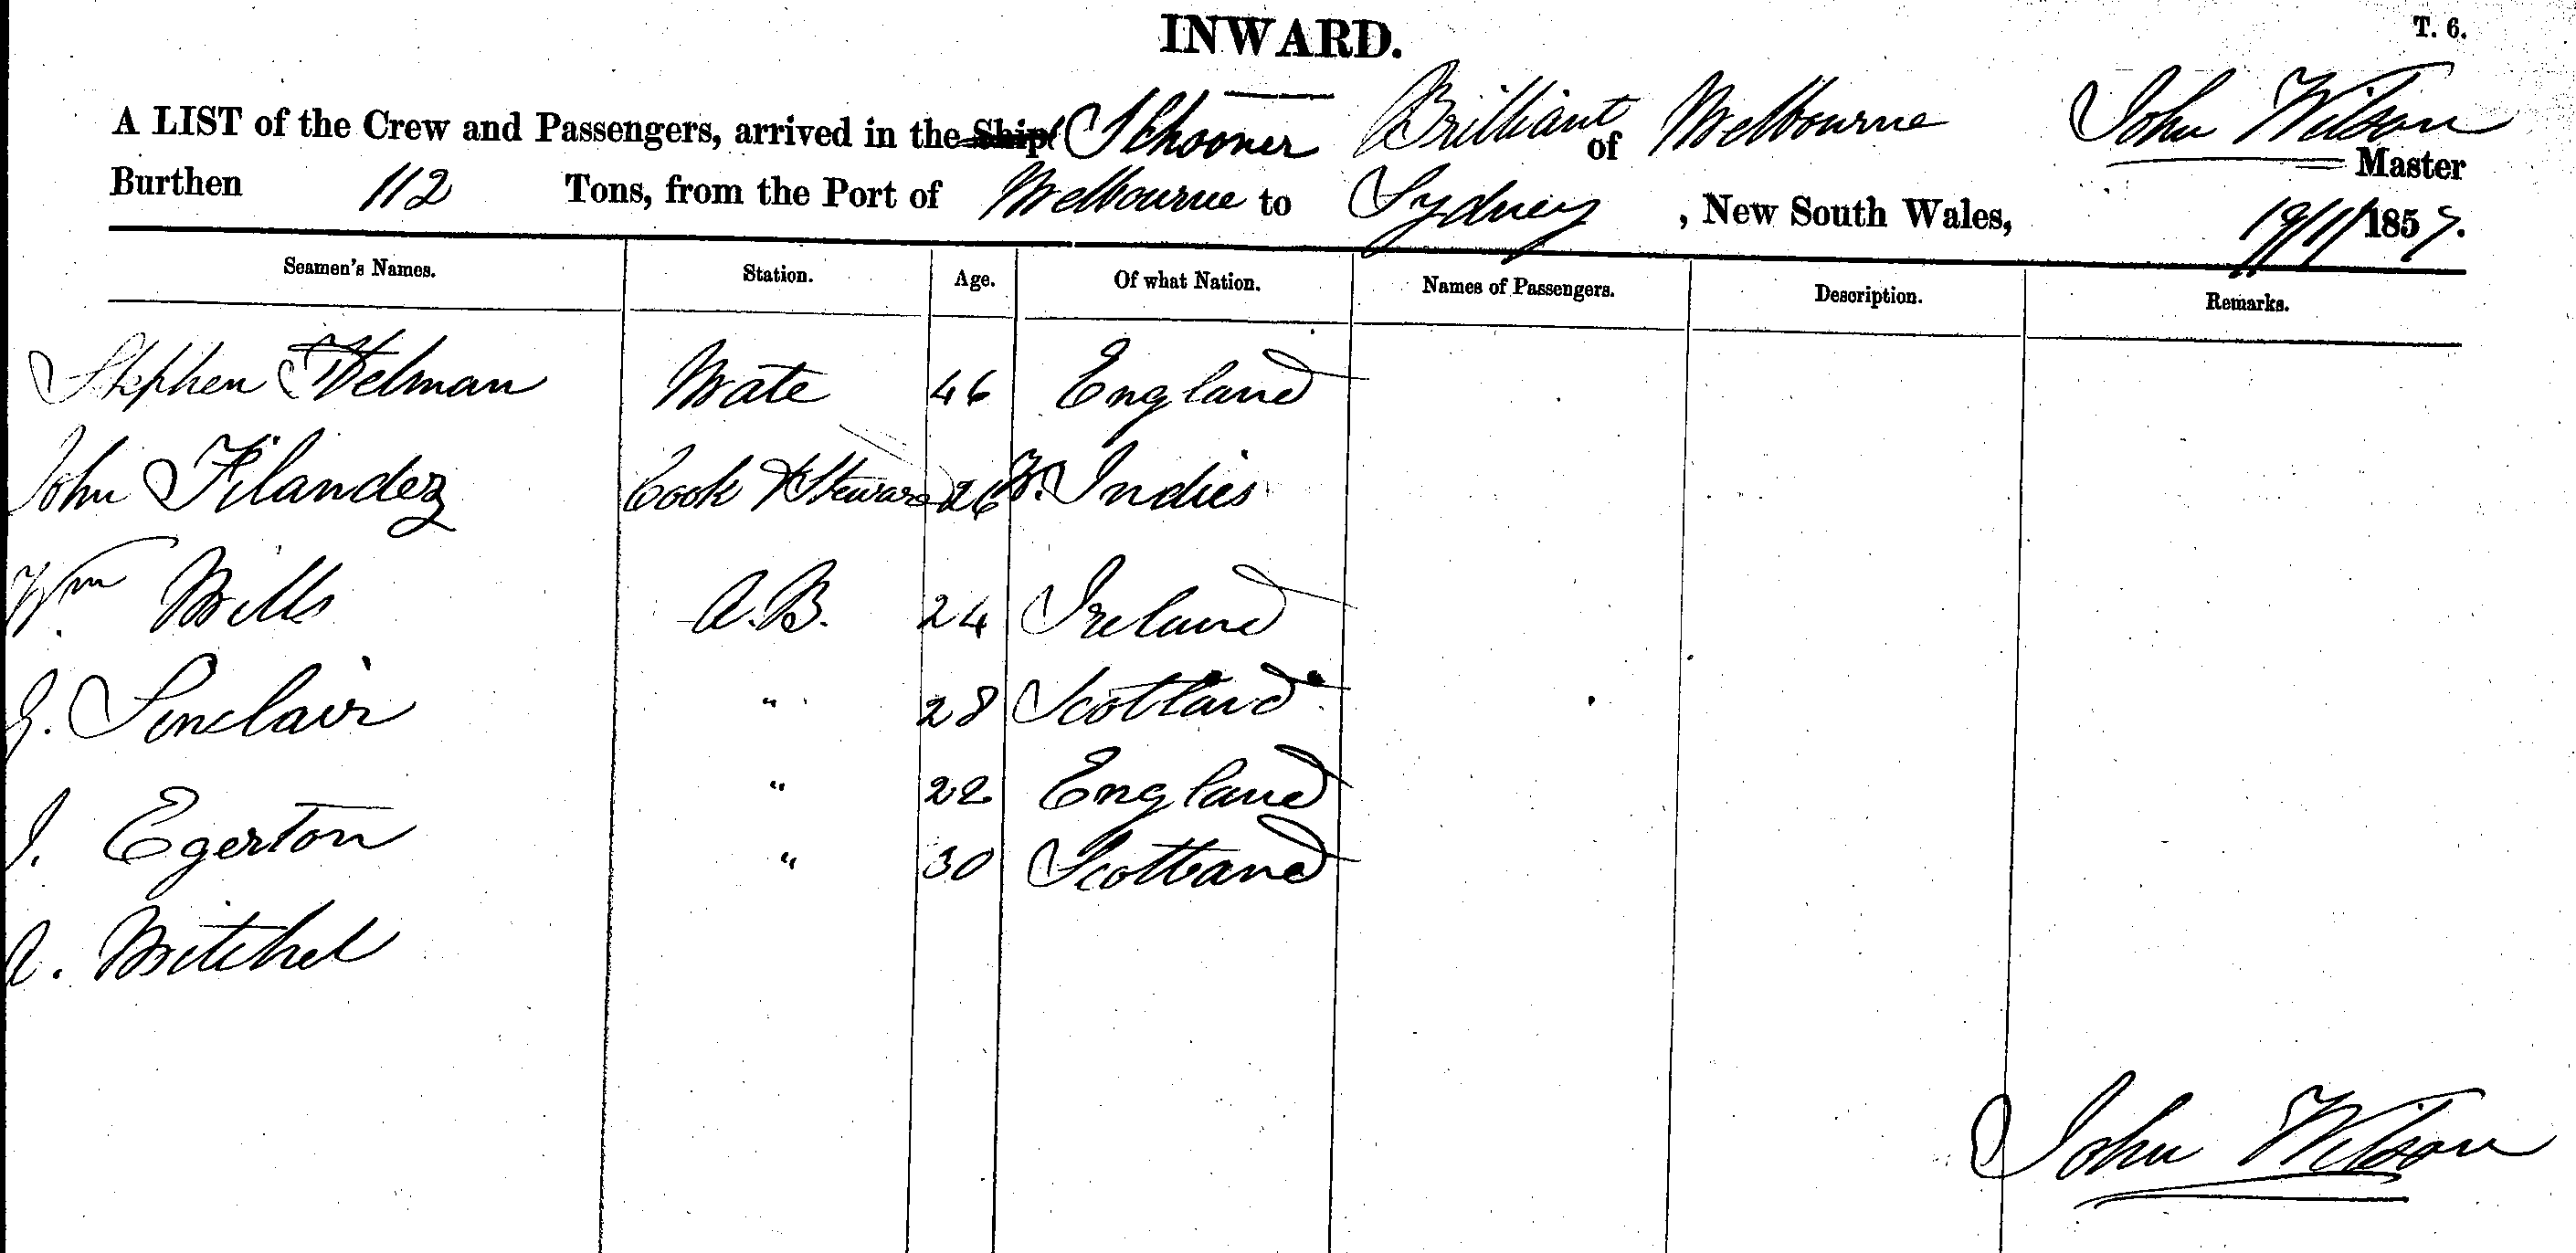 INWARD.
T. 6.
A LIST of the Crew and Passengers, arrived in the Ship Schooner Brilliant of Melbourne John Wilson Master
Burthen 112 Tons, from the Port of Melbourne to Sydney, New South Wales, 19/11/1857.
Seamen's Names. Station. Age. Of what Nation. Names of Passengers. Description. Remarks.
Stephen Helman Mate 46 England
John Filandez Cook & Steward 26 W. Indies
Wm. Mills A.B. 24 Ireland
G. Sinclair " 28 Scotland
J. Egerton " 22 England
A. Mitchel " 30 Scotland
John Wilson